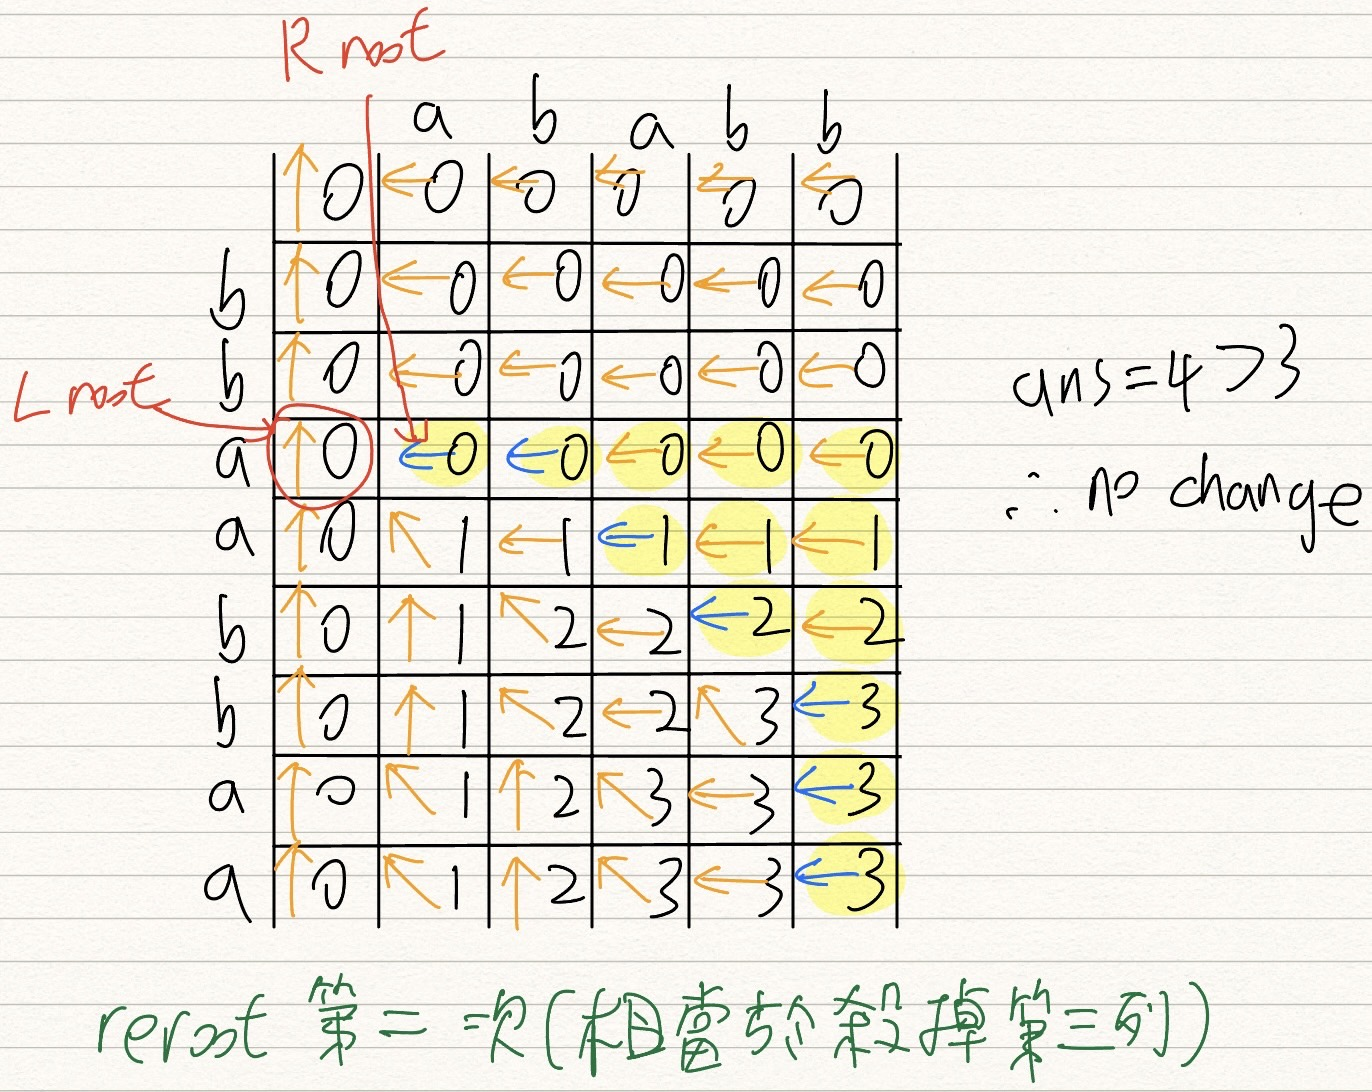 R root
a b a b b
0 ←0 ←0 ←0 ←0 ←0
b ↑0 ←0 ←0 ←0 ←0 ←0
b ↑0 ←0 ←0 ←0 ←0 ←0
L root
a ↑0 ←0 ←0 ←0 ←0 ←0
a ↑0 ↖1 ←1 ←1 ←1 ←1
b ↑0 ↑1 ↖2 ←2 ←2 ←2
b ↑0 ↑1 ↖2 ←2 ↖3 ←3
a ↑0 ↖1 ↑2 ↖3 ←3 ←3
a ↑0 ↖1 ↑2 ↖3 ←3 ←3
ans=4>3
∴ no change
reroot 第二次(相當於殺掉第三列)